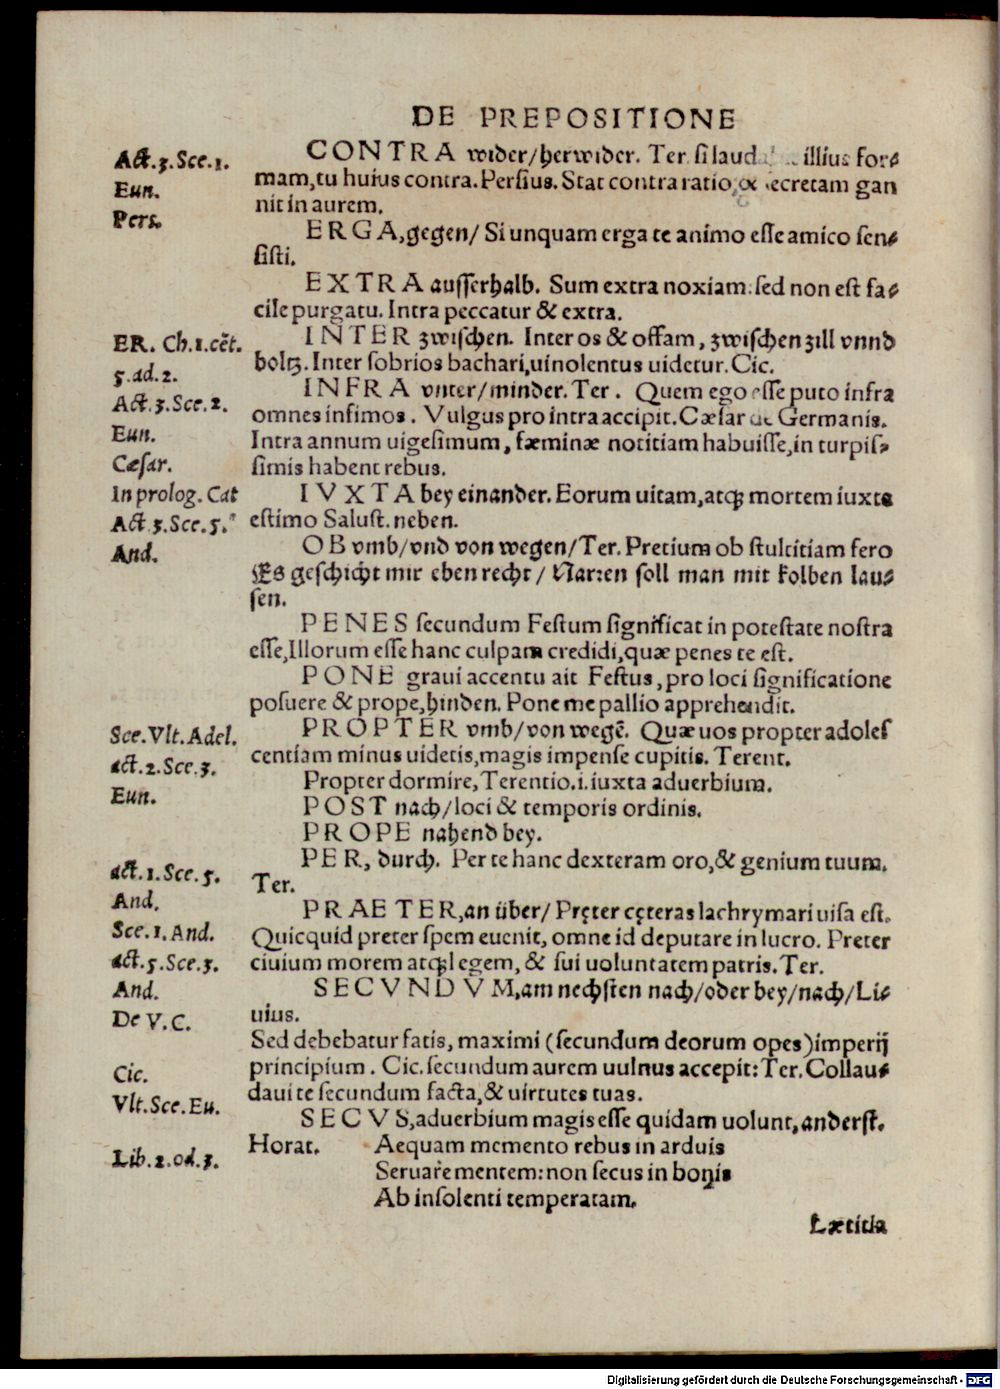 DE PREPOSITIONE
Act.3.Sce.1.
Eun.
Pers.
CONTRA wider/herwider. Ter. si laud illius for⸗
mam, tu huius contra. Persius. Stat contra ratio, & secretam gan
nit in aurem.
ERGA, gegen/ Si unquam erga te animo esse amico sen⸗
sisti.
EXTRA ausserhalb. Sum extra noxiam: sed non est fa⸗
cile purgatu. Intra peccatur & extra.
ER. Ch.1.cẽt.
5.ad.2.
Act.3.Sce.2.
Eun.
Cæsar.
In prolog. Cat
Act.3.Sce.5.
And.
INTER zwischen. Inter os & offam, zwischen zill vnnd
boltz. Inter sobrios bachari, uinolentus uidetur. Cic.
INFRA vnter/minder. Ter. Quem ego esse puto infra
omnes infimos. Vulgus pro intra accipit. Cæsar de Germanis.
Intra annum uigesimum, fæminæ notitiam habuisse, in turpis⸗
simis habent rebus.
IVXTA bey einander. Eorum uitam, atq; mortem iuxta
estimo Salust. neben.
OB vmb/vnd von wegen/Ter. Pretium ob stultitiam fero
Es geschicht mir eben recht/ Narren soll man mit kolben lau⸗
sen.
PENES secundum Festum significat in potestate nostra
esse, Illorum esse hanc culpam credidi, quæ penes te est.
PONE graui accentu ait Festus, pro loci significatione
posuere & prope, hinden. Pone me pallio apprehendit.
Sce.Vlt.Adel.
act.2.Sce.3.
Eun.
PROPTER vmb/von wegẽ. Quæ uos propter adoles
centiam minus uidetis, magis impense cupitis. Terent.
Propter dormire, Terentio.i.iuxta aduerbium.
POST nach/loci & temporis ordinis.
PROPE nahend bey.
act.1.Sce.5.
And.
Sce.1.And.
act.5.Sce.3.
And.
De V.C.
PER, durch. Per te hanc dexteram oro, & genium tuum.
Ter.
PRAETER, an über/ Pręter cęteras lachrymari uisa est.
Quicquid preter spem euenit, omne id deputare in lucro. Preter
ciuium morem atq; legem, & sui uoluntatem patris. Ter.
SECVNDVM, am nechsten nach/oder bey/nach/Li⸗
uius.
Cic.
Vlt.Sce.Eu.
Sed debebatur fatis, maximi (secundum deorum opes) imperij
principium. Cic. secundum aurem uulnus accepit: Ter. Collau⸗
daui te secundum facta, & uirtutes tuas.
SECVS, aduerbium magis esse quidam uolunt, anderst.
Lib.2.od.3.
Horat. Aequam memento rebus in arduis
Seruare mentem: non secus in bonis
Ab insolenti temperatam.
Lætitia
Digitalisierung gefördert durch die Deutsche Forschungsgemeinschaft - DFG